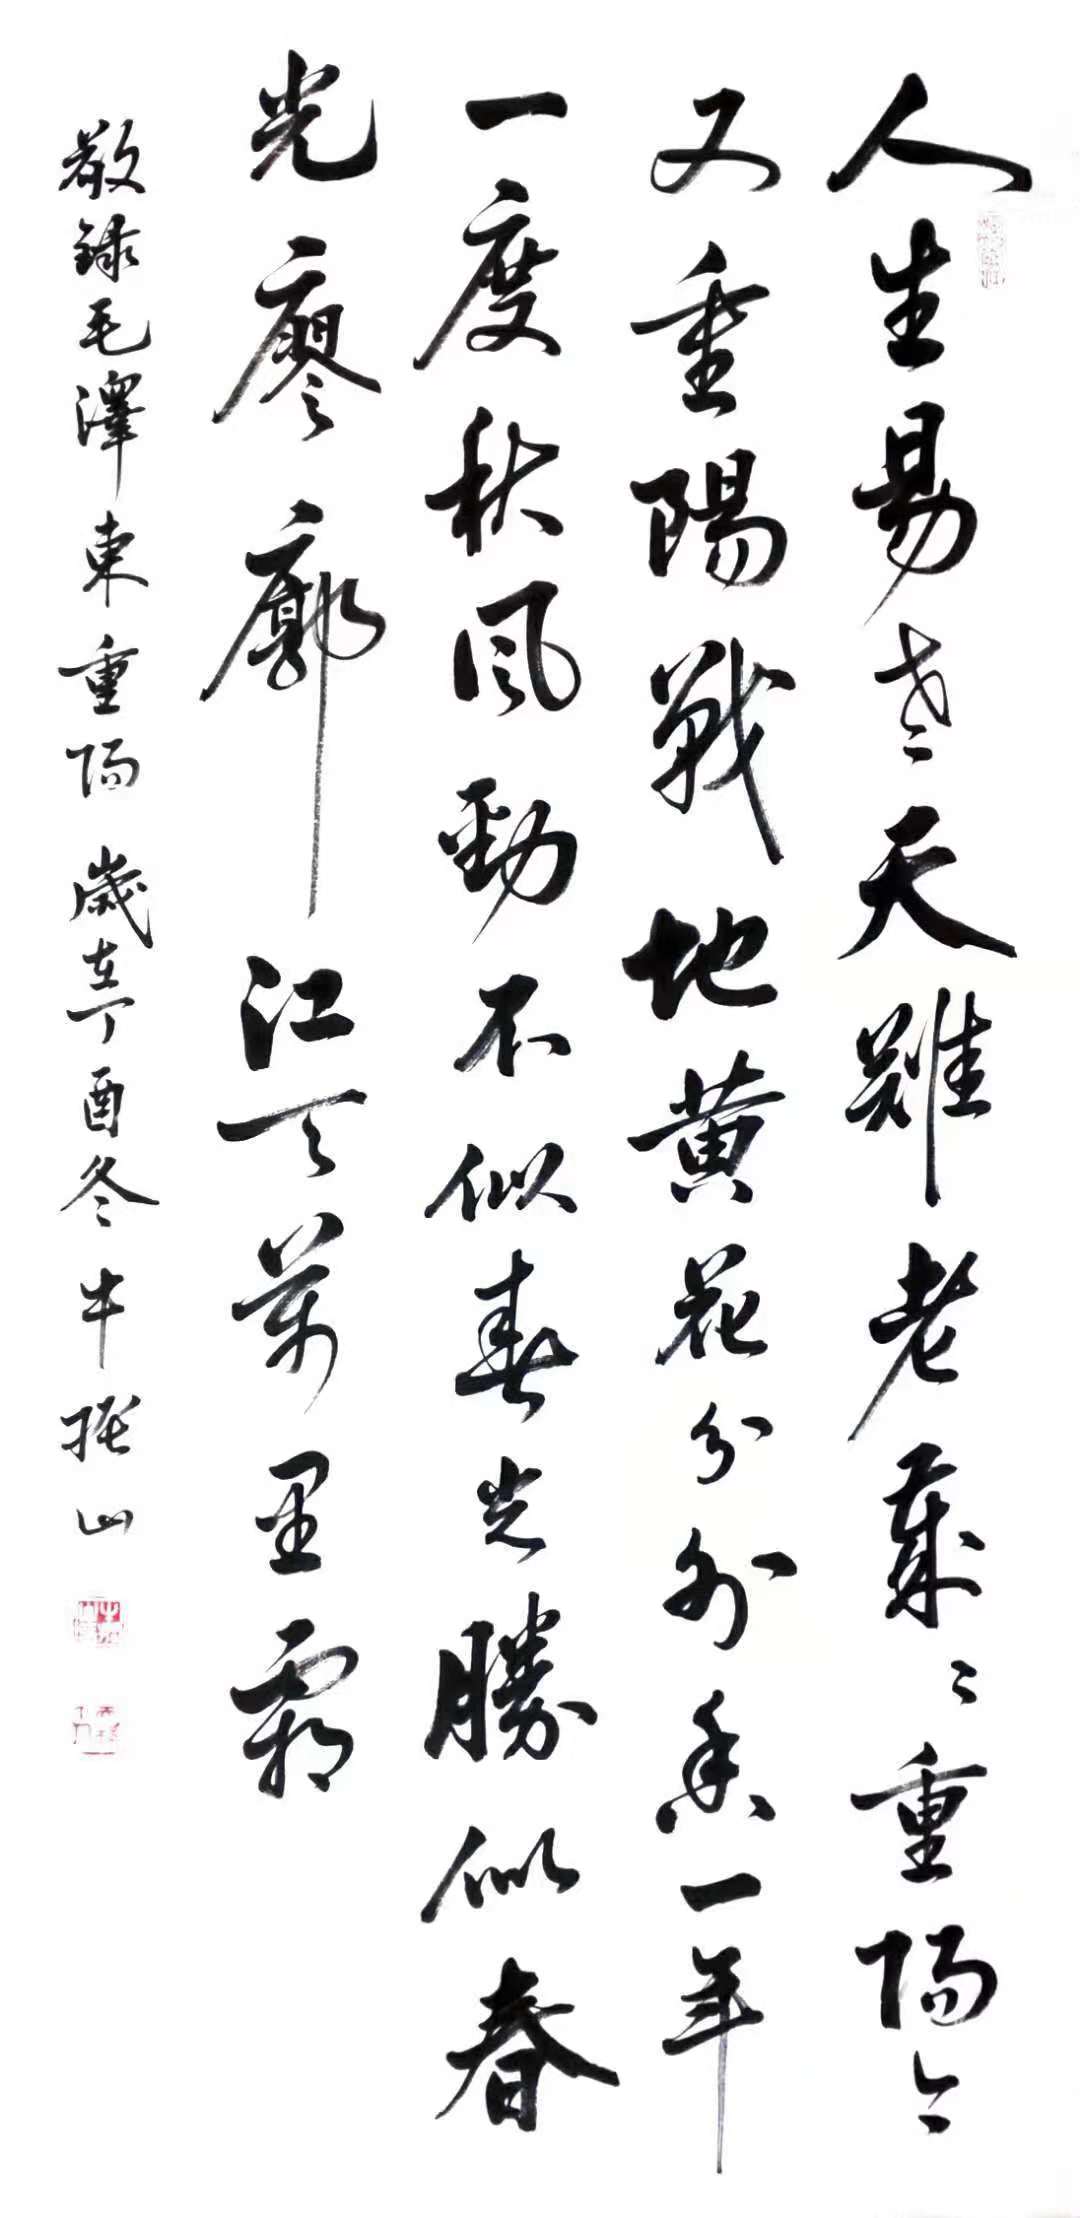 人生易老天難老歲〻重陽今
又重陽戰地黄花分外香一年
一度秋風勁不似春光勝似春
光廖廓江天萬里霜
敬録毛澤東重陽 歲在丁酉冬牛撰山